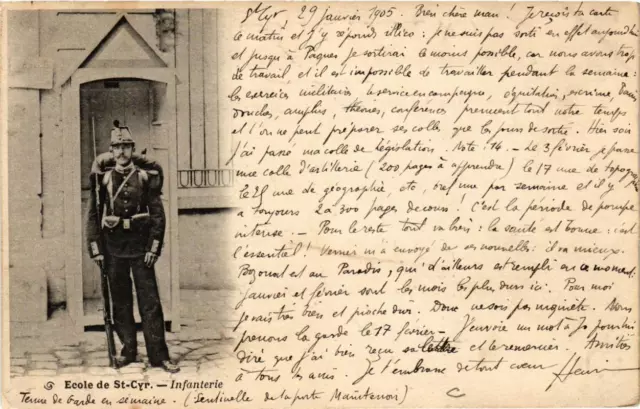 St Cyr, 29 janvier 1905. Bien chère mam! Je reçois ta carte
ce matin et j'y réponds illico: je ne suis pas sorti en effet aujourd'hui
et jusqu'à Pâques je sortirai le moins possible, car nous avons trop
de travail, et il est impossible de travailler pendant la semaine:
les exercices militaires le service en campagne, équitation, escrime, bains
douches, amphis, théories, conférences prennent tout notre temps
et l'on ne peut préparer ses colles que les jours de sortie. Hier soir
j'ai passé ma colle de législation. Note: 14. - Le 3 février je passe
une colle d'artillerie (200 pages à apprendre) le 17 une de topographie
le 25 une de géographie, etc, bref une par semaine et il y a
toujours 2 à 300 pages de cours! C'est la période de pompe
intense. - Pour le reste tout va bien: la santé est bonne: c'est
l'essentiel! Vernier m'a envoyé de ses nouvelles: il va mieux.
est au Paradis, qui d'ailleurs est rempli en ce moment.
Janvier et février sont les mois les plus durs ici. Pour moi
je vais très bien et pioche dur. Donc ne sois pas inquiète. Nous
prenons la garde le 17 février - J'envoie un mot à Jo pour lui
dire que j'ai bien reçu sa lettre et le remercier. Amitiés
à tous les amis. Je t'embrasse de tout cœur Henri
Ecole de St-Cyr. — Infanterie
Tenue de Garde en semaine. (Sentinelle de la porte Maintenon)